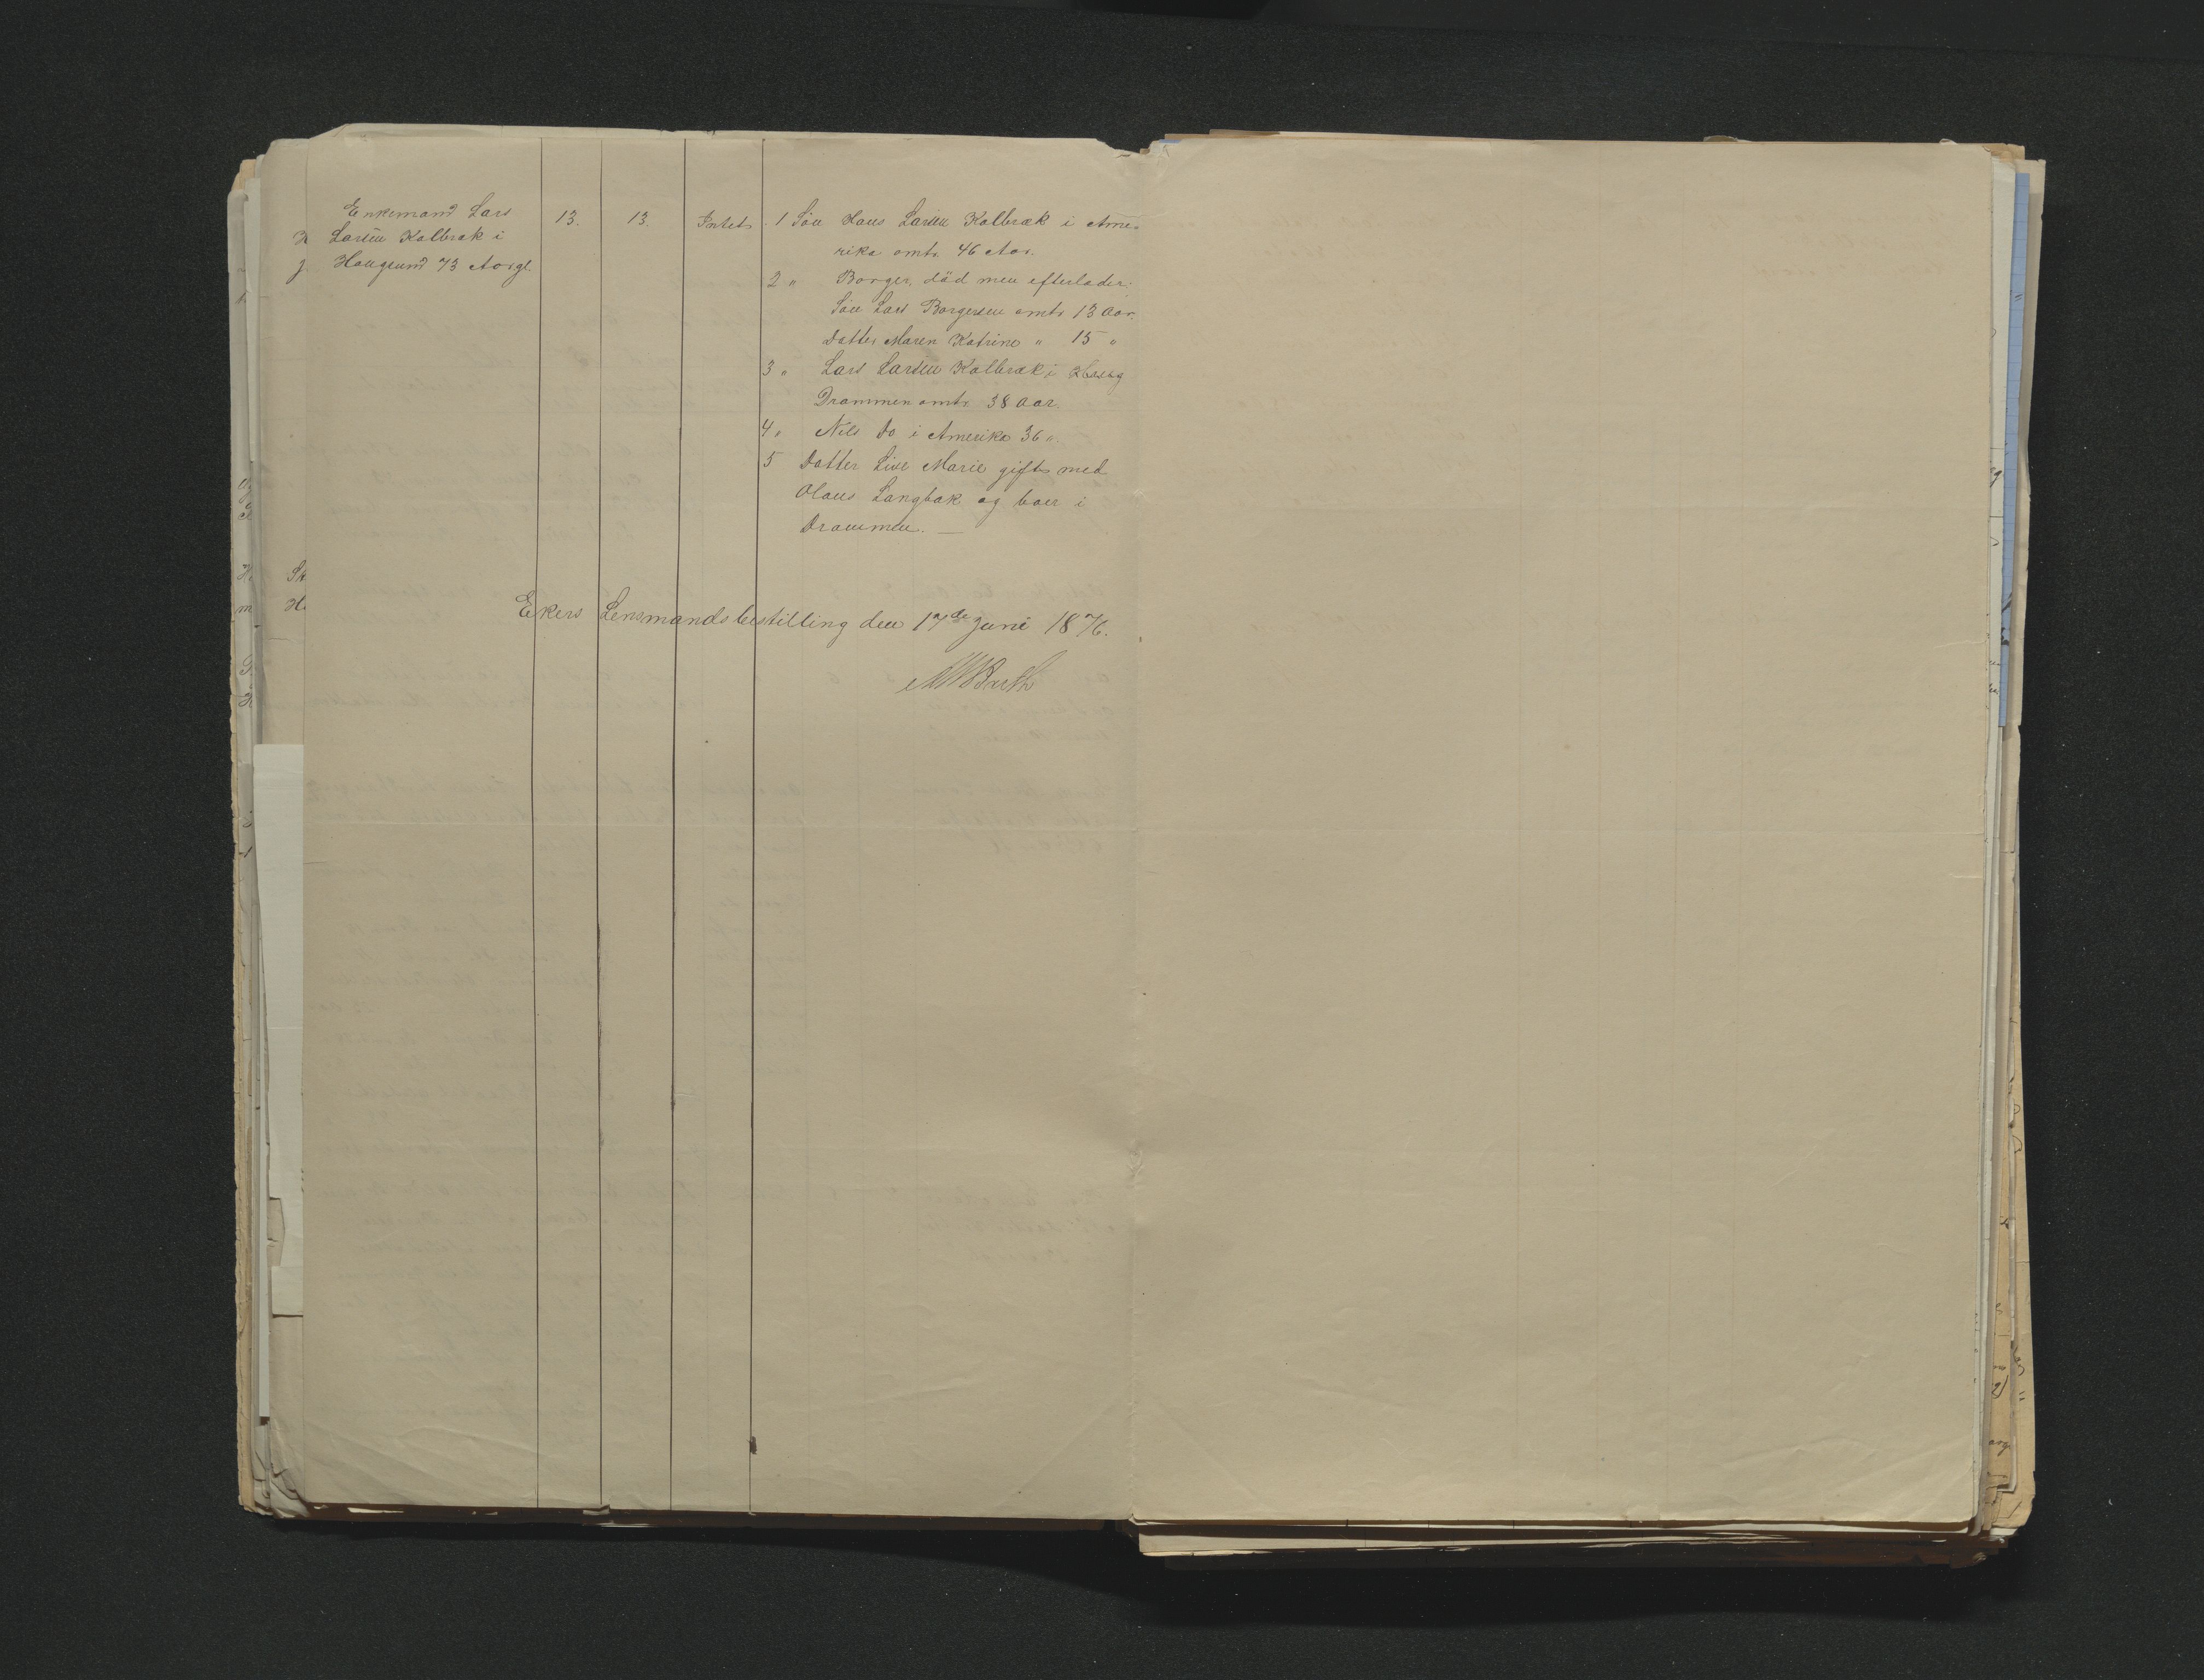 Enkemand Lars
Larsen Kolbræk i
Hougsund 73 Aar gl.
13.
13.
Intet.
1 Søn Hans Larsen Kolbræk i Ame-
rika omtr. 46 Aar.
2 " Borger, død men efterlader:
Søn Lars Borgersen omtr 13 Aar.
Datter Maren Katrine " 15 "
3 " Lars Larsen Kolbræk i
Drammen omtr. 38 Aar.
4 " Nils Do i Amerika 36 ".
5 Datter Live Marie gift med
Olaus Langbak og boer i
Drammen. —
Ekers Lensmandsbestilling den 17de Juni 1876.
Barth